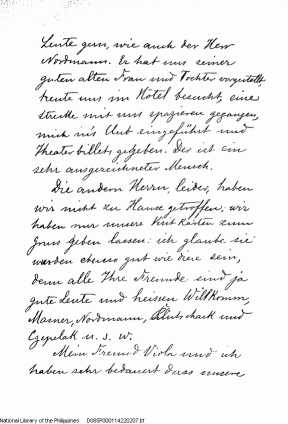 Leute gern, wie auch der Herr
Nordmann. Er hat uns seiner
guten alten Frau und Tochter vorgestellt,
heute uns im Hôtel besucht, eine
strecke mit uns spazieren gegangen,
mich in's Club eingeführt und
Theaterbillets gegeben. Das ist ein
sehr ausgezeichneter Mensch.
Die andern Herrn, leider, haben
wir nicht zu Hause getroffen; wir
haben nur unsere Visit Karten zum
Gruss geben lassen: ich glaube sie
werden ebenso gut wie diese sein,
denn alle Ihre Freunde sind ja
gute Leute und heissen Willkomm,
Nordmann, und
Czepelak u. s. w.
Mein Freund Viola und ich
haben sehr bedauert dass unsere
National Library of the Philippines D08SR000114220207.tif